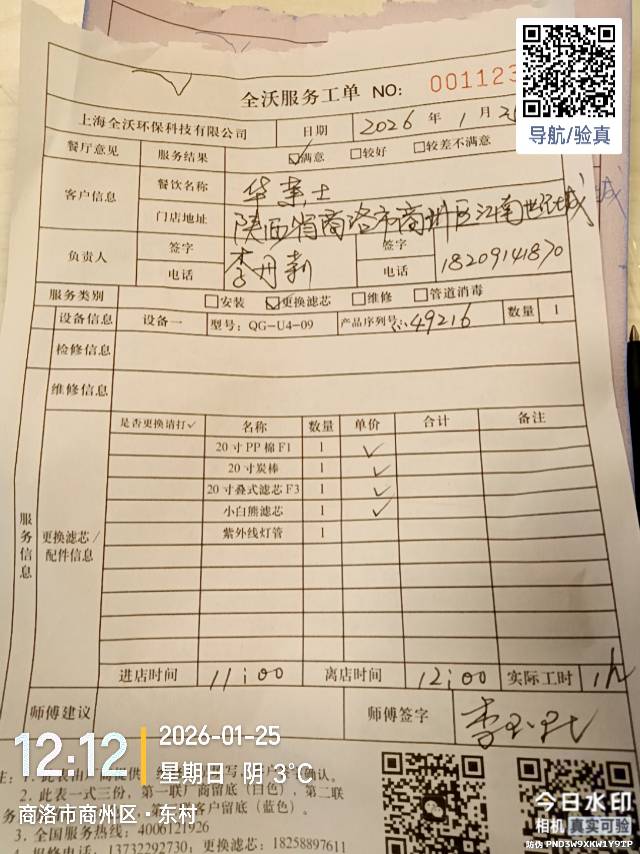 全沃服务工单 NO: 001123
导航/验真
上海全沃环保科技有限公司 日期 2026 年 1 月 25
餐厅意见 服务结果 ☑满意 □较好 □较差不满意
客户信息 餐饮名称 华莱士
门店地址 陕西省商洛市商州区江南世纪城
负责人 签字 李丹莉 签字
电话 电话 18209141870
服务类别 □安装 ☑更换滤芯 □维修 □管道消毒
设备信息 设备一 型号: QG-U4-09 产品序列号 49216 数量 1
检修信息
维修信息
服务信息 更换滤芯/配件信息
是否更换请打✓ 名称 数量 单价 合计 备注
20寸PP棉F1 1 ✓
20寸炭棒 1 ✓
20寸叠式滤芯F3 1 ✓
小白熊滤芯 1 ✓
紫外线灯管 1
进店时间 11:00 离店时间 12:00 实际工时 1h
师傅建议 师傅签字
12:12 2026-01-25
星期日·阴 3℃
商洛市商州区·东村
2. 此表一式三份,第一联厂商留底(白色),第二联
客户留底(蓝色)。
3. 全国服务热线: 4006121926
报修电话: 13732292730; 更换滤芯: 18258897611
今日水印
相机 真实可验
防伪 PND3W9XKW1Y9TP